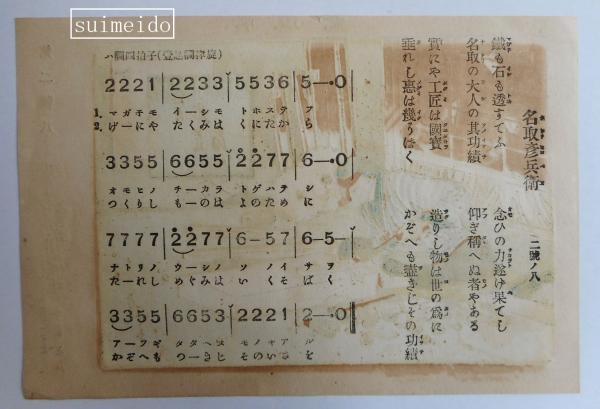 suimeido
名取彦兵衛
二號ノ八
鐵も石も透すてふ
念ひの力遂げ果てし
名取の大人の其功績
仰ぎ稱へぬ者やある
實にや工匠は國寶
造りし物は世の爲に
垂れし惠は幾ぅばく
かぞへも盡きじその功績
2221|2233|5536|5-・0
1.マガチモ イーシモ トホステ フ
2.げーにや たくみは くにたか ら
3355|6655|2277|6-・0
オモヒノ チーカラ トゲハテ シ
つくりし ものは よのため に
7777|2277|6-57|6-5-
ナトリノ ウーシノ ソノイ サヲ
たーれし めぐみは いくそ ばく
3355|6653|2221|2-・0
アーフギ タタヘヌ モノヤア ル
かぞへも つーきじ そのいさ を